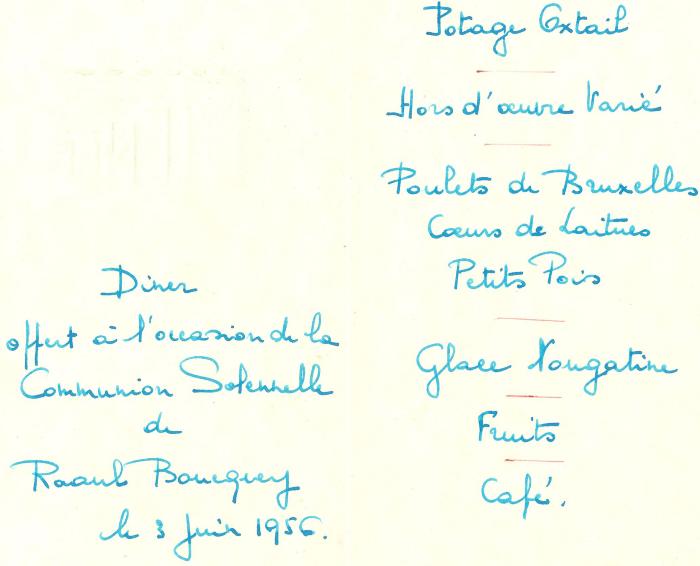 Diner
offert à l'occasion de la
Communion Solennelle
de
Raoul Boucquey
le 3 Juin 1956.
Potage Oxtail
Hors d'œuvre Varié
Poulets de Bruxelles
Cœurs de Laitues
Petits Pois
Glace Nougatine
Fruits
Café.